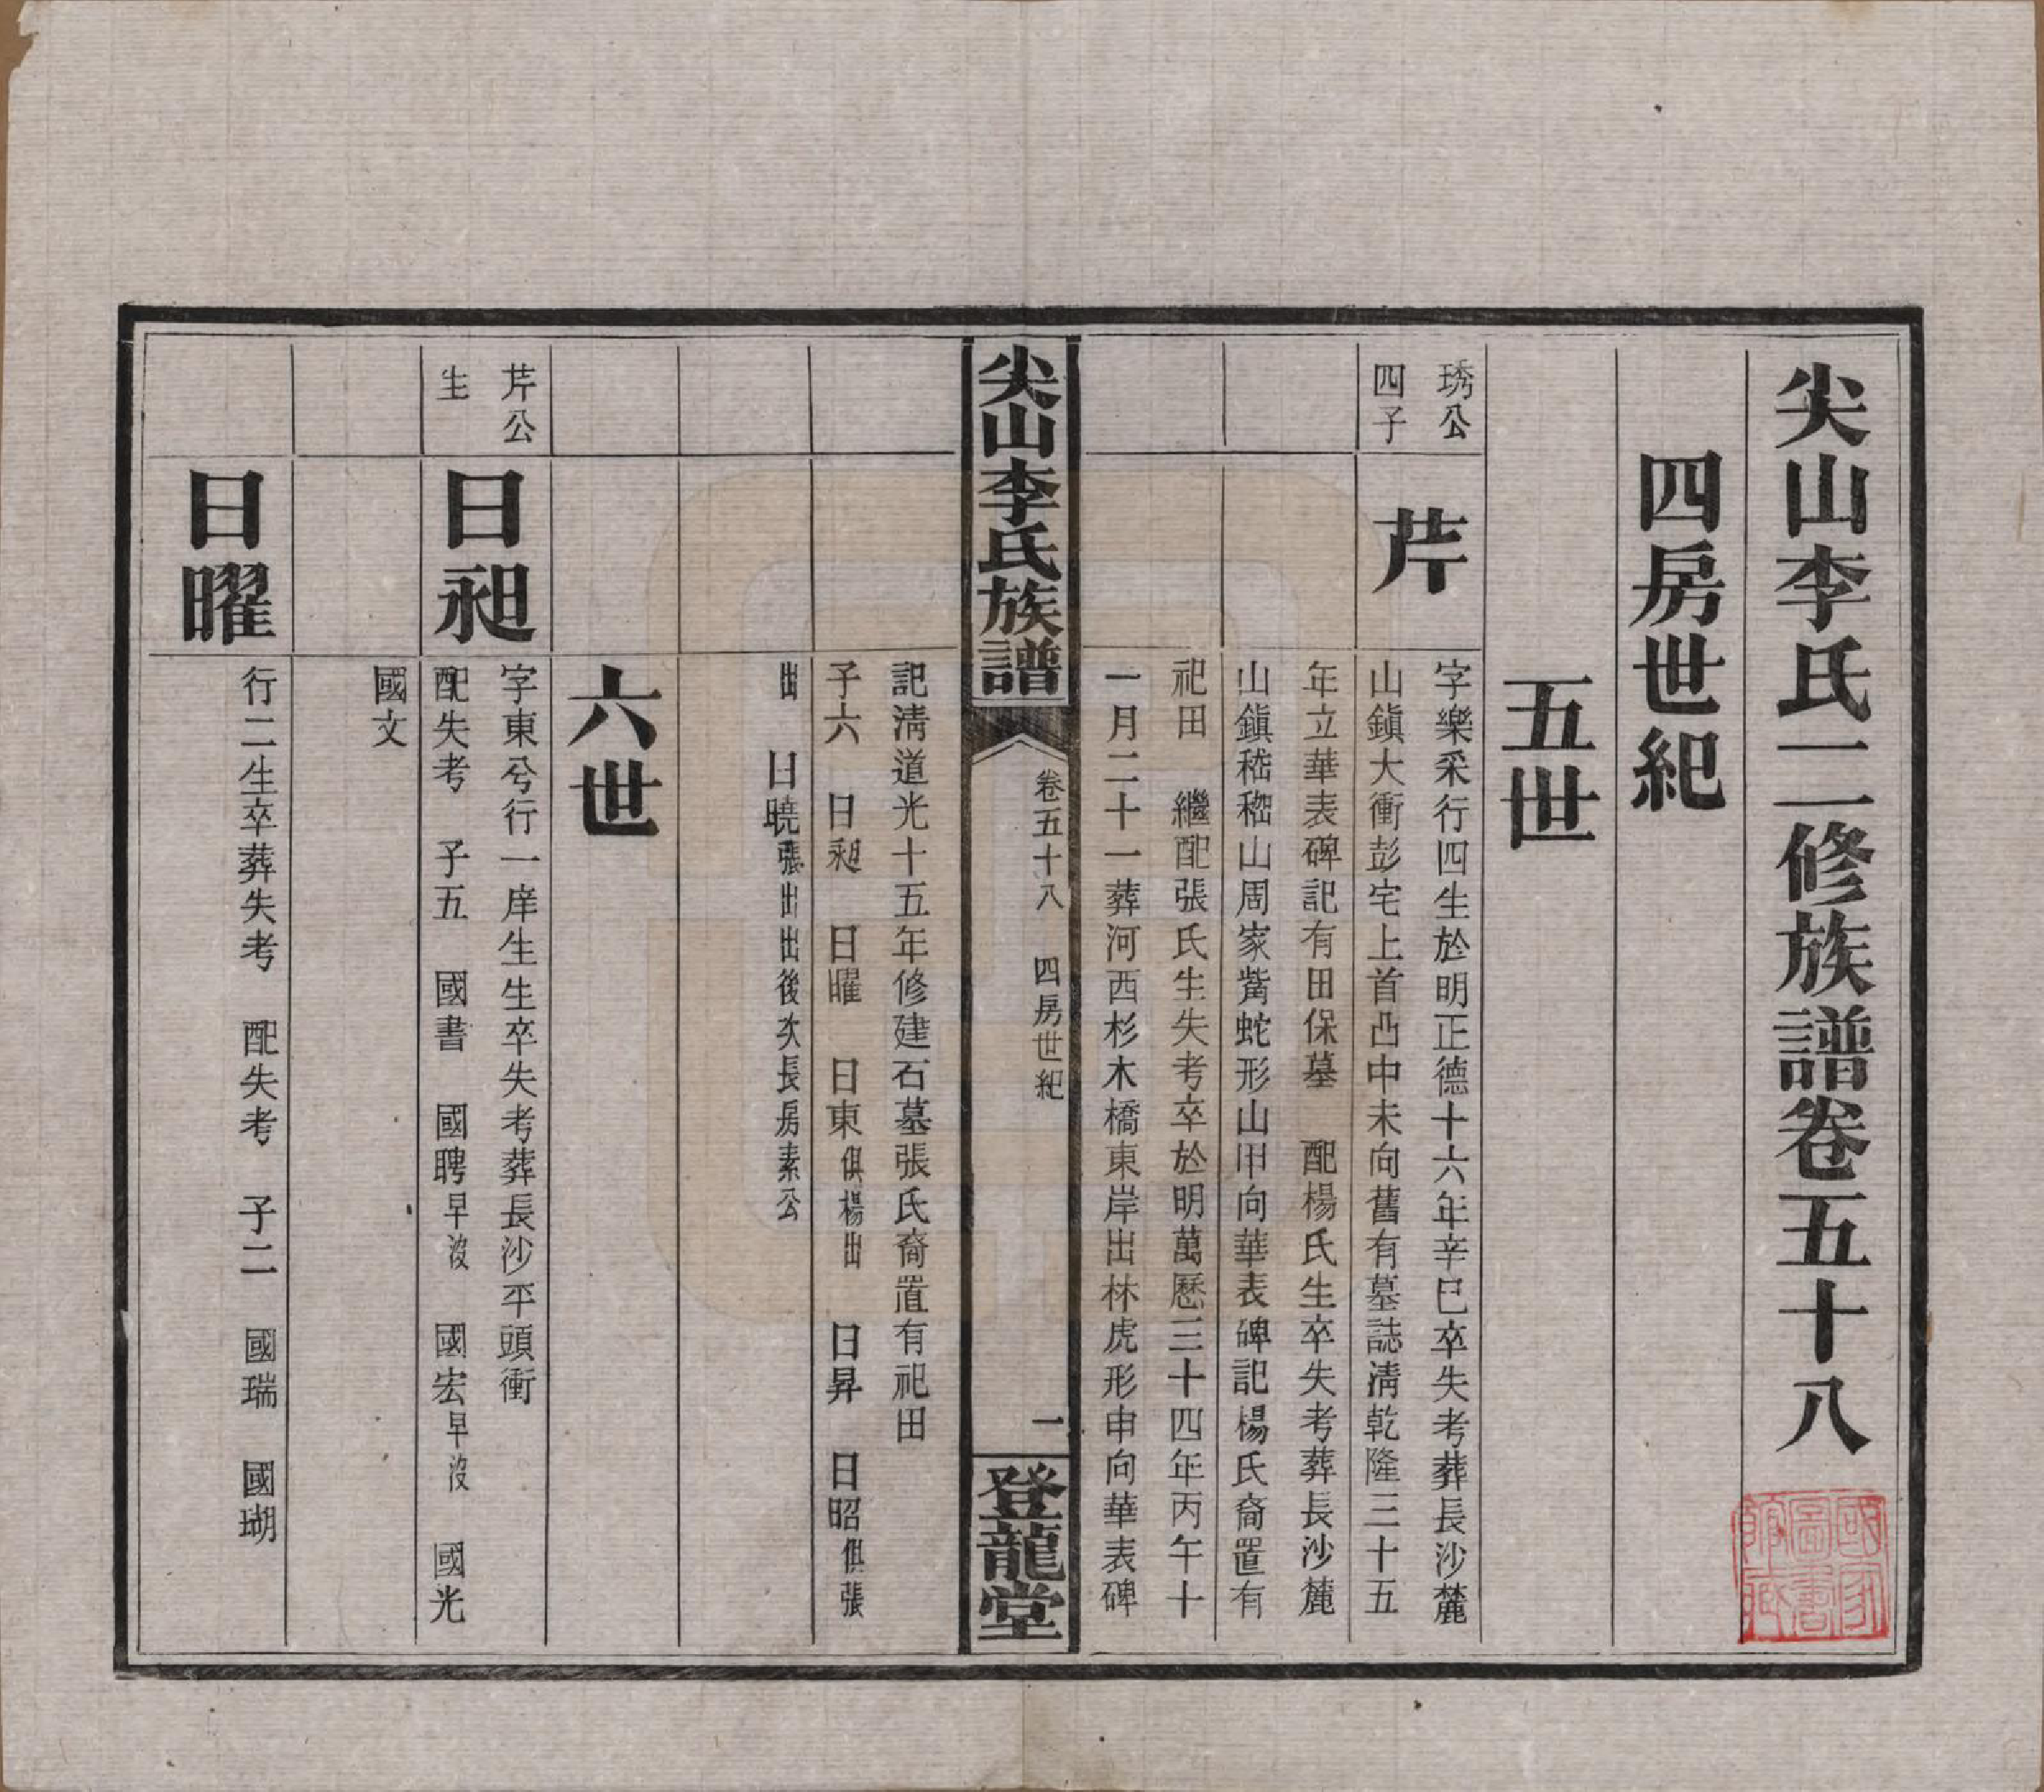 尖山李氏二修族譜卷五十八
四房世紀
五世
琇公
四子
芹
字樂采行四生於明正德十六年辛巳卒失考葬長沙麓
山鎮大衝彭宅上首凸中未向舊有墓誌清乾隆三十五
年立華表碑記有田保墓　配楊氏生卒失考葬長沙麓
山鎮嵇嵇山周家觜蛇形山甲向華表碑記楊氏裔置有
祀田　繼配張氏生失考卒於明萬曆三十四年丙午十
一月二十一葬河西杉木橋東岸出林虎形申向華表碑
尖山李氏族譜
卷五十八　四房世紀
一
登龍堂
記清道光十五年修建石墓張氏裔置有祀田
子六　日昶　日曜　日東俱楊出　日昇　日昭俱張
出　日曉張出出後次長房素公
六世
芹公
生
日昶
字東兮行一庠生生卒失考葬長沙平頭衝
配失考　子五　國書　國聘早沒　國宏早沒　國光
國文
日曜
行二生卒葬失考　配失考　子二　國瑞　國瑚
國家
圖書
館藏